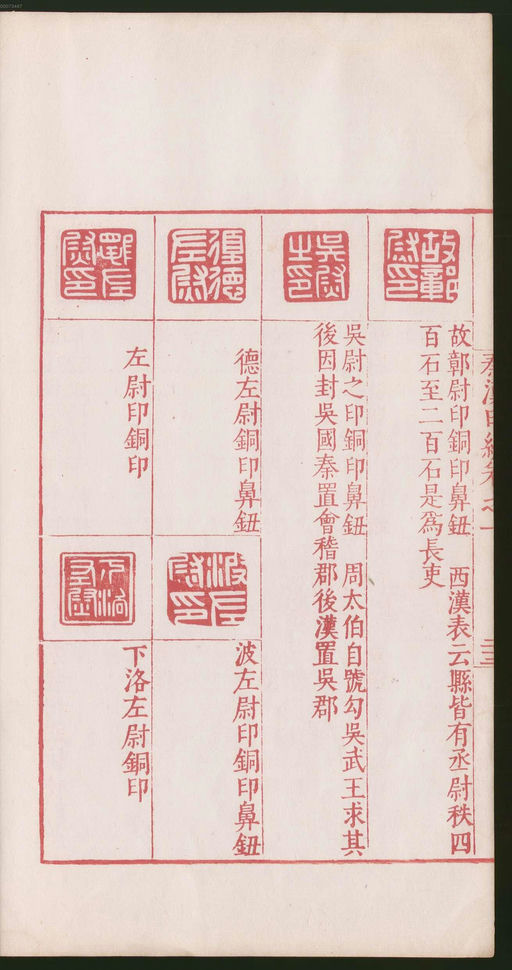 00073447
秦漢印統卷之一
二十三
故鄣尉印
故鄣尉印銅印鼻鈕 西漢表云縣皆有丞尉秩四
百石至二百石是爲長吏
吳尉之印
吳尉之印銅印鼻鈕 周太伯自號勾吳武王求其
後因封吳國秦置會稽郡後漢置吳郡
德左尉銅印鼻鈕
波左尉印
波左尉印銅印鼻鈕
左尉印銅印
下洛左尉銅印